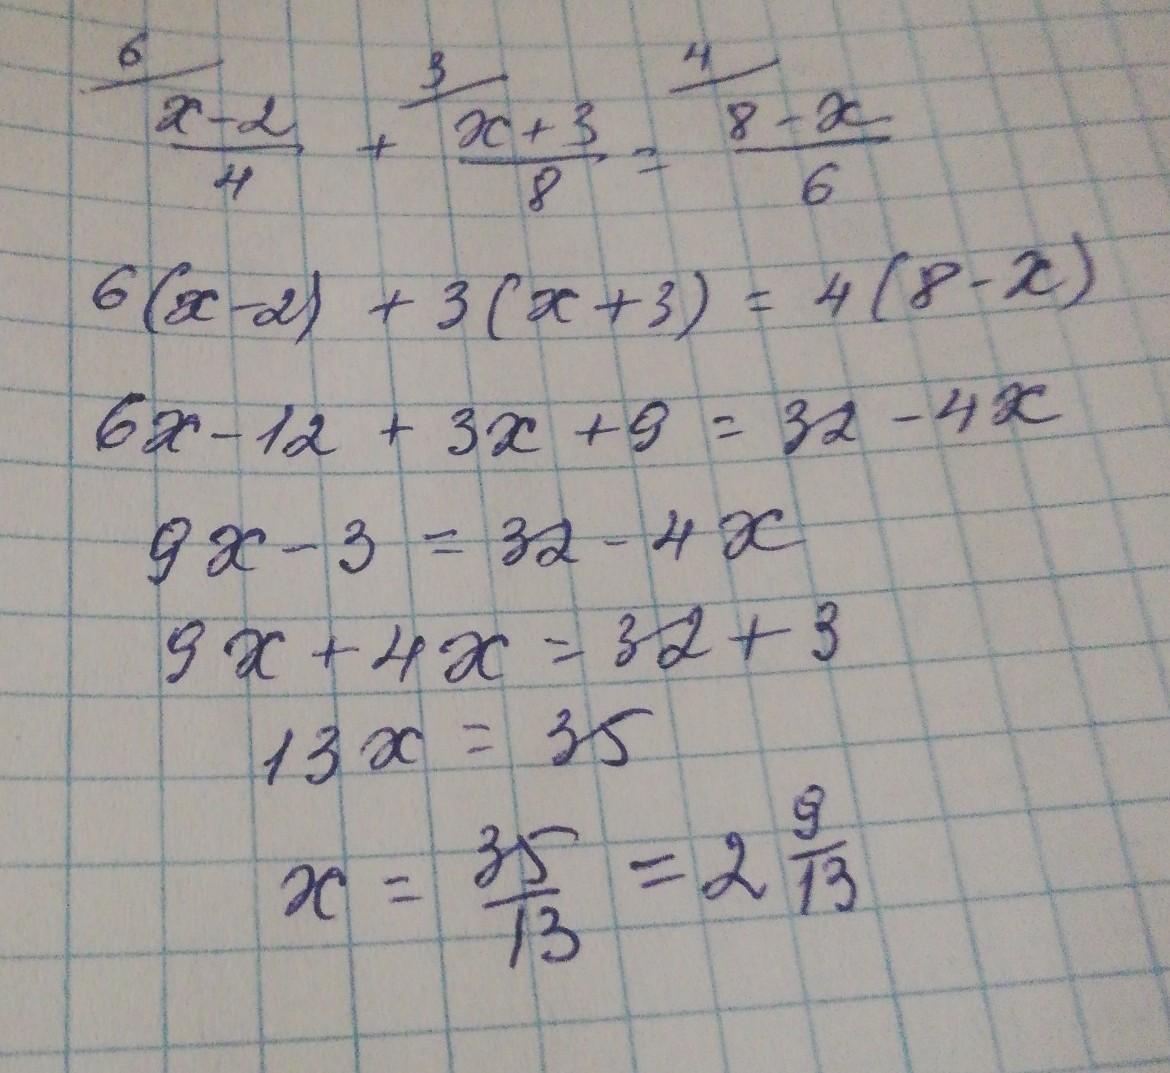 6 3 4
x-2/4 + x+3/8 = 8-x/6
6(x-2) + 3(x+3) = 4(8-x)
6x-12 + 3x+9 = 32-4x
9x-3 = 32-4x
9x+4x = 32+3
13x = 35
x = 35/13 = 2 9/13